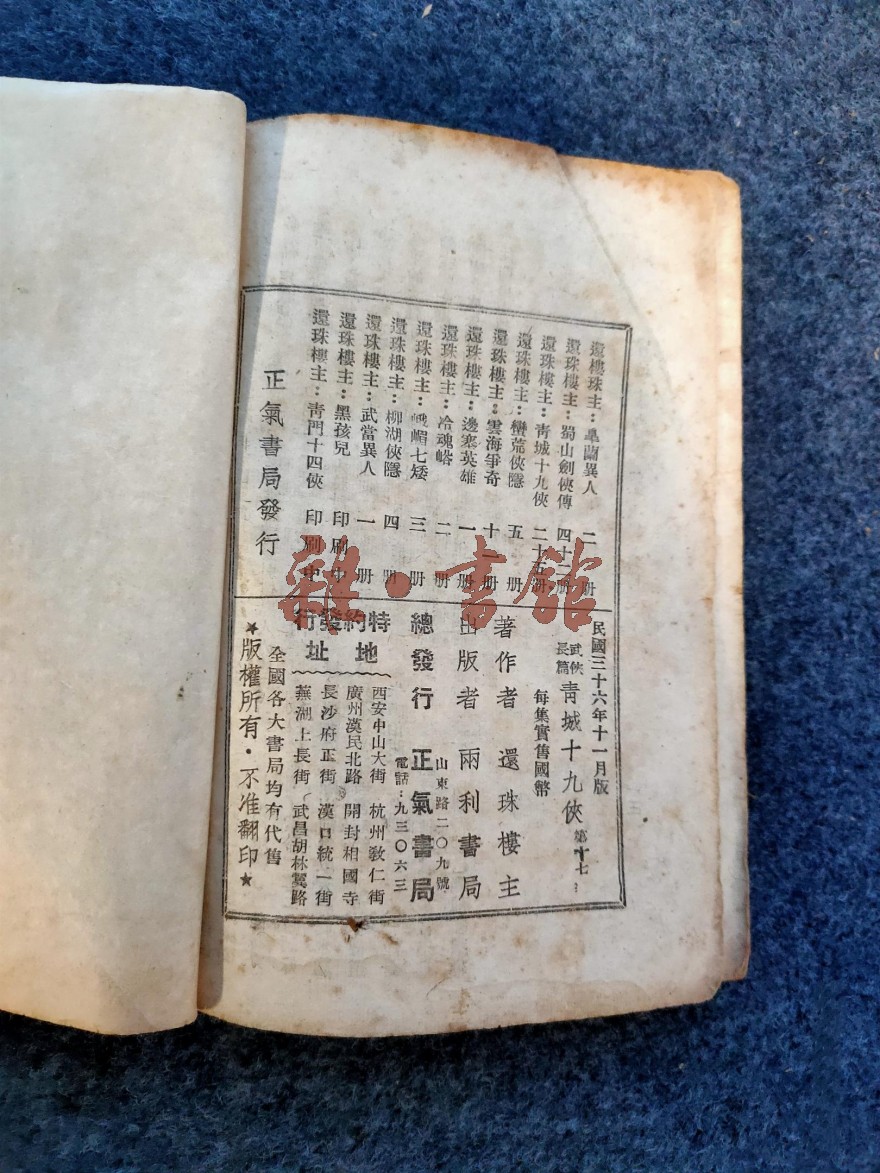 還樓珠主：皐蘭異人　二　册
還珠樓主：蜀山劍俠傳　四十二册
還珠樓主：靑城十九俠　二十五册
還珠樓主：蠻荒俠隱　五　册
還珠樓主：雲海爭奇　十一册
還珠樓主：邊塞英雄　一　册
還珠樓主：冷魂峪　二　册
還珠樓主：峨嵋七矮　三　册
還珠樓主：柳湖俠隱　四　册
還珠樓主：武當異人　一　册
還珠樓主：黑孩兒　印刷中
還珠樓主：靑門十四俠　印刷中
正氣書局發行
民國三十六年十一月版
武俠長篇　靑城十九俠　第十七
每集實售國幣
著作者　還珠樓主
出版者　兩利書局
總發行　正氣書局
山東路二〇九號
電話：九三〇六三
特約發行
地址
西安中山大街　杭州敎仁街
廣州漢民北路　開封相國寺
長沙府正街　漢口統一街
蕪湖上長街　武昌胡林翼路
全國各大書局均有代售
★版權所有·不准翻印★
雜·書館